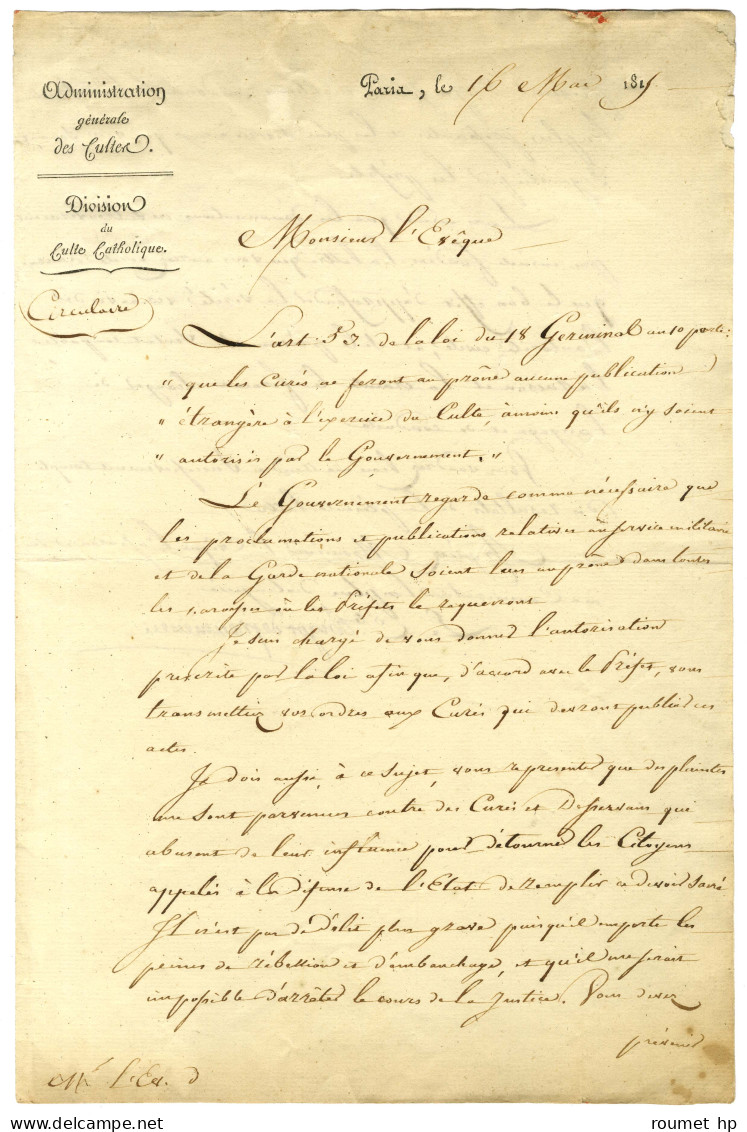 Administration
générale
des Cultes.
Division
du
Culte Catholique.
Circulaire
Paris, le 16 Mai 1815
Monsieur l'Evêque
L'art. 53. de la loi du 18 Germinal an 10 porte:
" que les Curés ne feront au prône aucune publication
" étrangère à l'exercice du Culte, à moins qu'ils n'y soient
" autorisés par le Gouvernement. "
Le Gouvernement regarde comme nécessaire que
les proclamations et publications relatives au service militaire
et de la Garde nationale soient lues au prône dans toutes
les paroisses où les Préfets le requerront
Je suis chargé de vous donner l'autorisation
prescrite par la loi afin que, d'accord avec le Préfet, vous
transmettiez vos ordres aux Curés qui devront publier ces
actes.
Je dois aussi, à ce sujet, vous représenter que des plaintes
me sont parvenues contre des Curés et Desservans qui
abusent de leur influence pour détourner les Citoyens
appelés à la défense de l'Etat de remplir ce devoir sacré
Il n'est pas de délit plus grave puisqu'il emporte les
peines de rébellion et d'embauchage, et qu'il me serait
impossible d'arrêter le cours de la Justice. Vous devez
prévenir
Mr. l'Ev. d
roumet hp